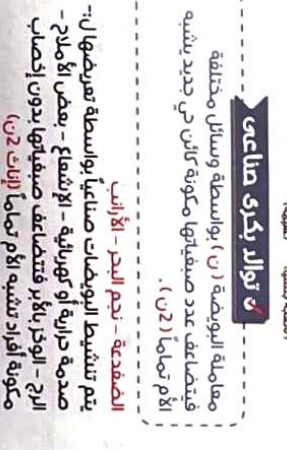 توالد بكرى صناعى
معاملة البويضة (ن) بواسطة وسائل مختلفة
فيتضاعف عدد صبغياتها مكونة كائن حي جديد يشبه
الأم تماماً (2ن).
الضفدعة - نجم البحر - الأرانب
يتم تنشيط البويضات صناعياً بواسطة تعريضها ل:-
صدمة حرارية أو كهربائية - الإشعاع - بعض الأملاح -
الرج - الوخز بالأبر فتتضاعف صبغياتها بدون إخصاب
مكونة أفراد تشبه الأم تماماً (إناث 2ن)